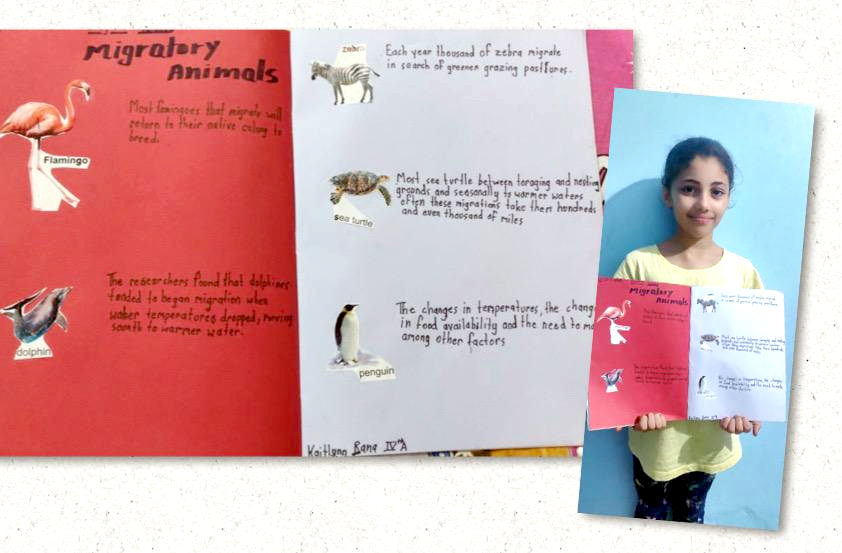 Migratory
Animals
Most flamingoes that migrate will
return to their native colony to
breed.
Flamingo
The researchers found that dolphines
tended to began migration when
water temperatures dropped, moving
south to warmer water.
dolphin
zebra
Each year thousand of zebra migrate
in search of greener grazing pastures.
Most sea turtle between foraging and nesting
grounds and seasonally to warmer waters
often these migrations take them hundreds
and even thousand of miles
sea turtle
The changes in temperatures, the chang
in food availability and the need to
among other factors
penguin
Kaitlynn Rana IVth A
Migratory
Animals